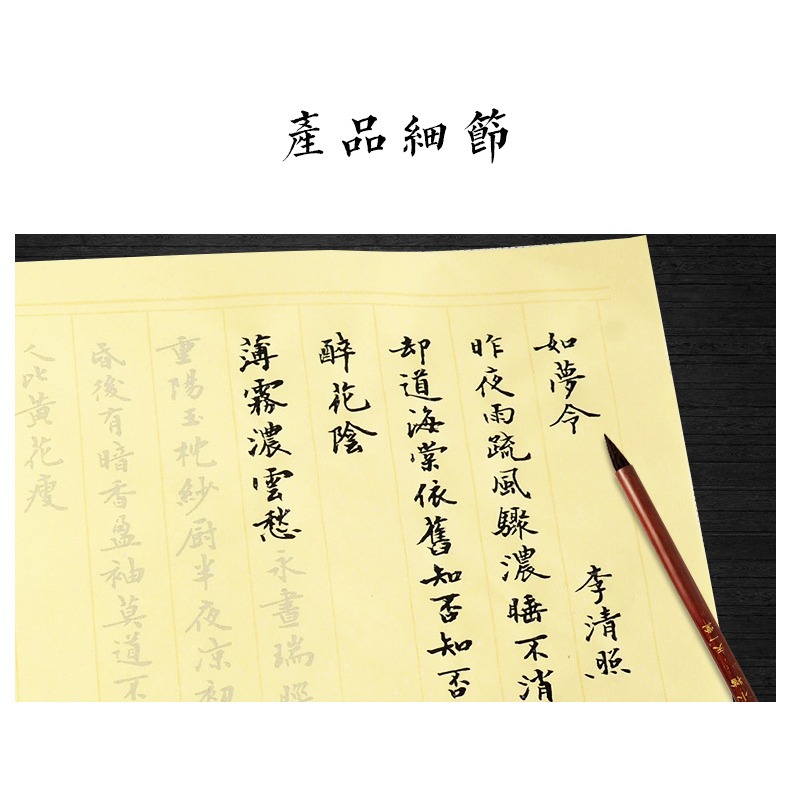 產品細節
如夢令
李清照
昨夜雨疏風驟濃睡不消
却道海棠依舊知否知否
醉花陰
薄霧濃雲愁永晝瑞
重陽玉枕紗厨半夜凉初
昏後有暗香盈袖莫道不
人比黃花瘦